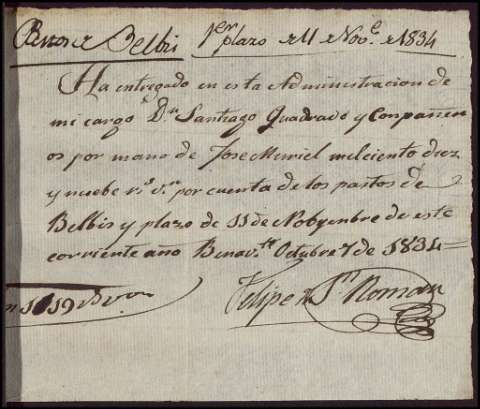 Belbis 1er plazo de 11 de Nove. de 1834
Ha entregado en esta Administracion de
mi cargo Dn. Santiago Quadrado y Conpañer
os por mano de Jose Muriel mil ciento diez
y nuebe rs. vn. por cuenta de los pastos de
Belbis y plazo de 11 de Nobyenbre de este
corriente año Benavte. Octubre 7 de 1834=
Felipe de Sn Roman